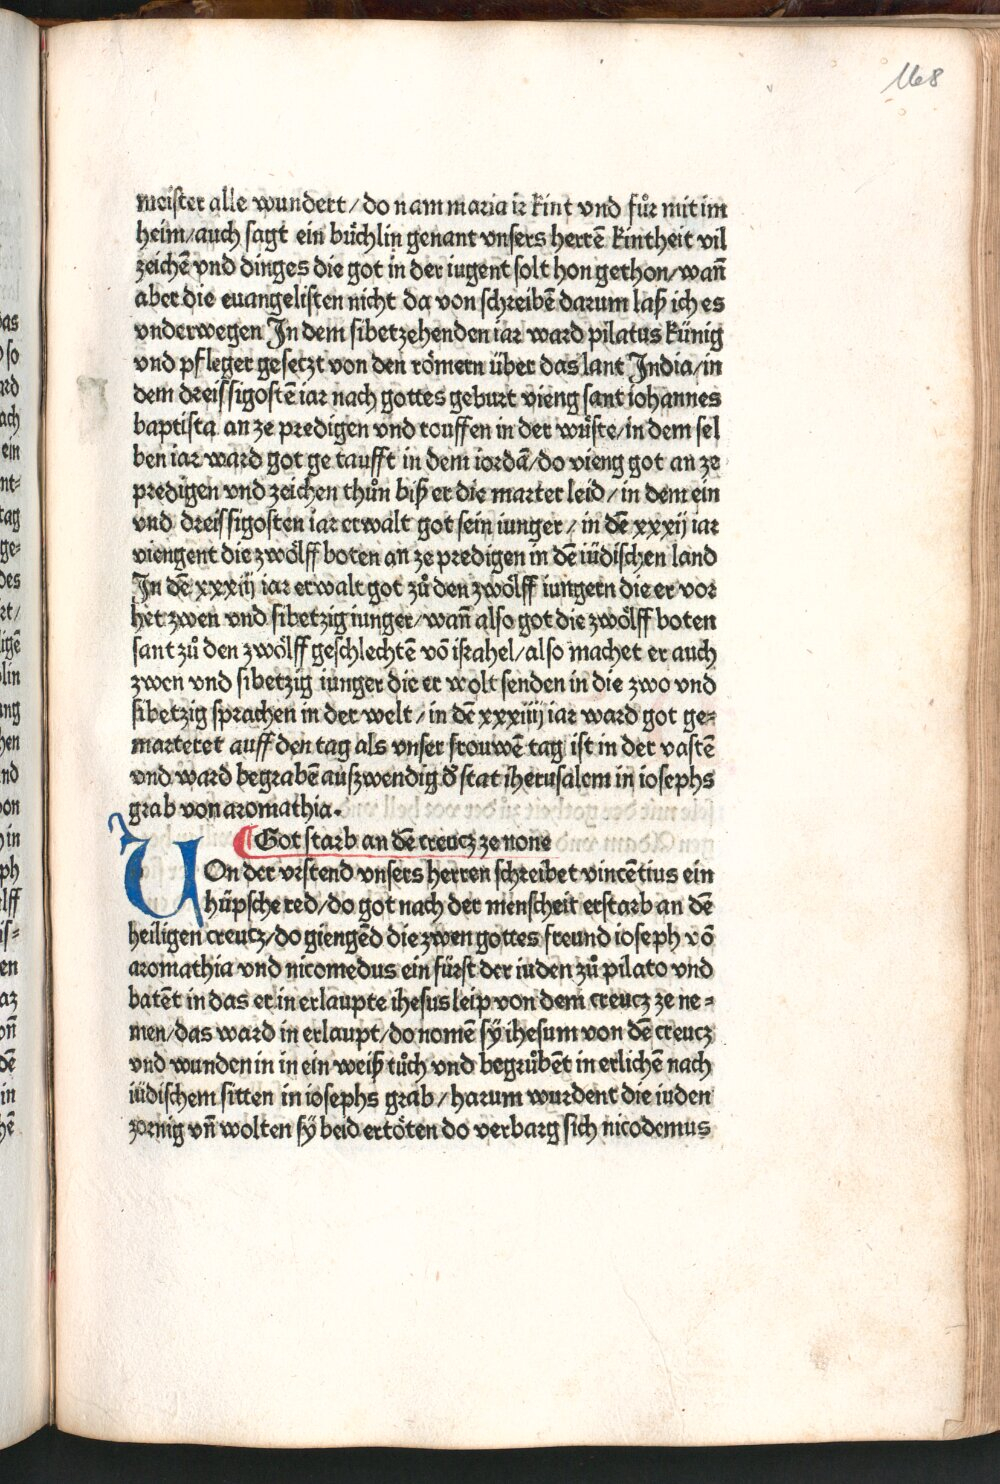 168
meister alle wundert/do nam maria ir kint vnd fůr mit im
heim/auch sagt ein büchlin genant vnsers herrē kintheit vil
zeichē vnd dinges die got in der iugent solt hon gethon/wañ
aber die euangelisten nicht da von schreibē darum laß ich es
vnderwegen In dem sibetzehenden iar ward pilatus künig
vnd pfleger gesetzt von den römern über das lant India/in
dem dreissigostē iar nach gottes geburt vieng sant iohannes
baptista an ze predigen vnd touffen in der wüste/in dem sel
ben iar ward got ge taufft in dem iordā/do vieng got an ze
predigen vnd zeichen thůn biß er die marter leid/in dem ein
vnd dreissigosten iar erwalt got sein iunger/in dē xxxij iar
viengent die zwölff boten an ze predigen in dē iüdischen land
In dē xxxiij iar erwalt got zů den zwölff iungern die er vor
het zwen vnd sibetzig iunger/wañ also got die zwölff boten
sant zů den zwölff geschlechtē vō israhel/also machet er auch
zwen vnd sibetzig iunger die er wolt senden in die zwo vnd
sibetzig sprachen in der welt/in dē xxxiiij iar ward got ge⸗
marteret auff den tag als vnser frouwē tag ist in der vastē
vnd ward begrabē auszwendig d̄ stat iherusalem in iosephs
grab von aromathia.
Got starb an dē creucz ze none
UOn der vrstend vnsers herren schreibet vincētius ein
hüpsche red/do got nach der menscheit erstarb an dē
heiligen creutz/do giengēd die zwen gottes freund ioseph vō
aromathia vnd nicomedus ein fürst der iuden zů pilato vnd
batēt in das er in erlaupte ihesus leip von dem creucz ze ne⸗
men/das ward in erlaupt/do nomē sÿ ihesum von dē creucz
vnd wunden in in ein weiß tůch vnd begrůbēt in erlichē nach
iüdischem sitten in iosephs grab/harum wurdent die iuden
zornig vñ wolten sÿ beid ertöten do verbarg sich nicodemus